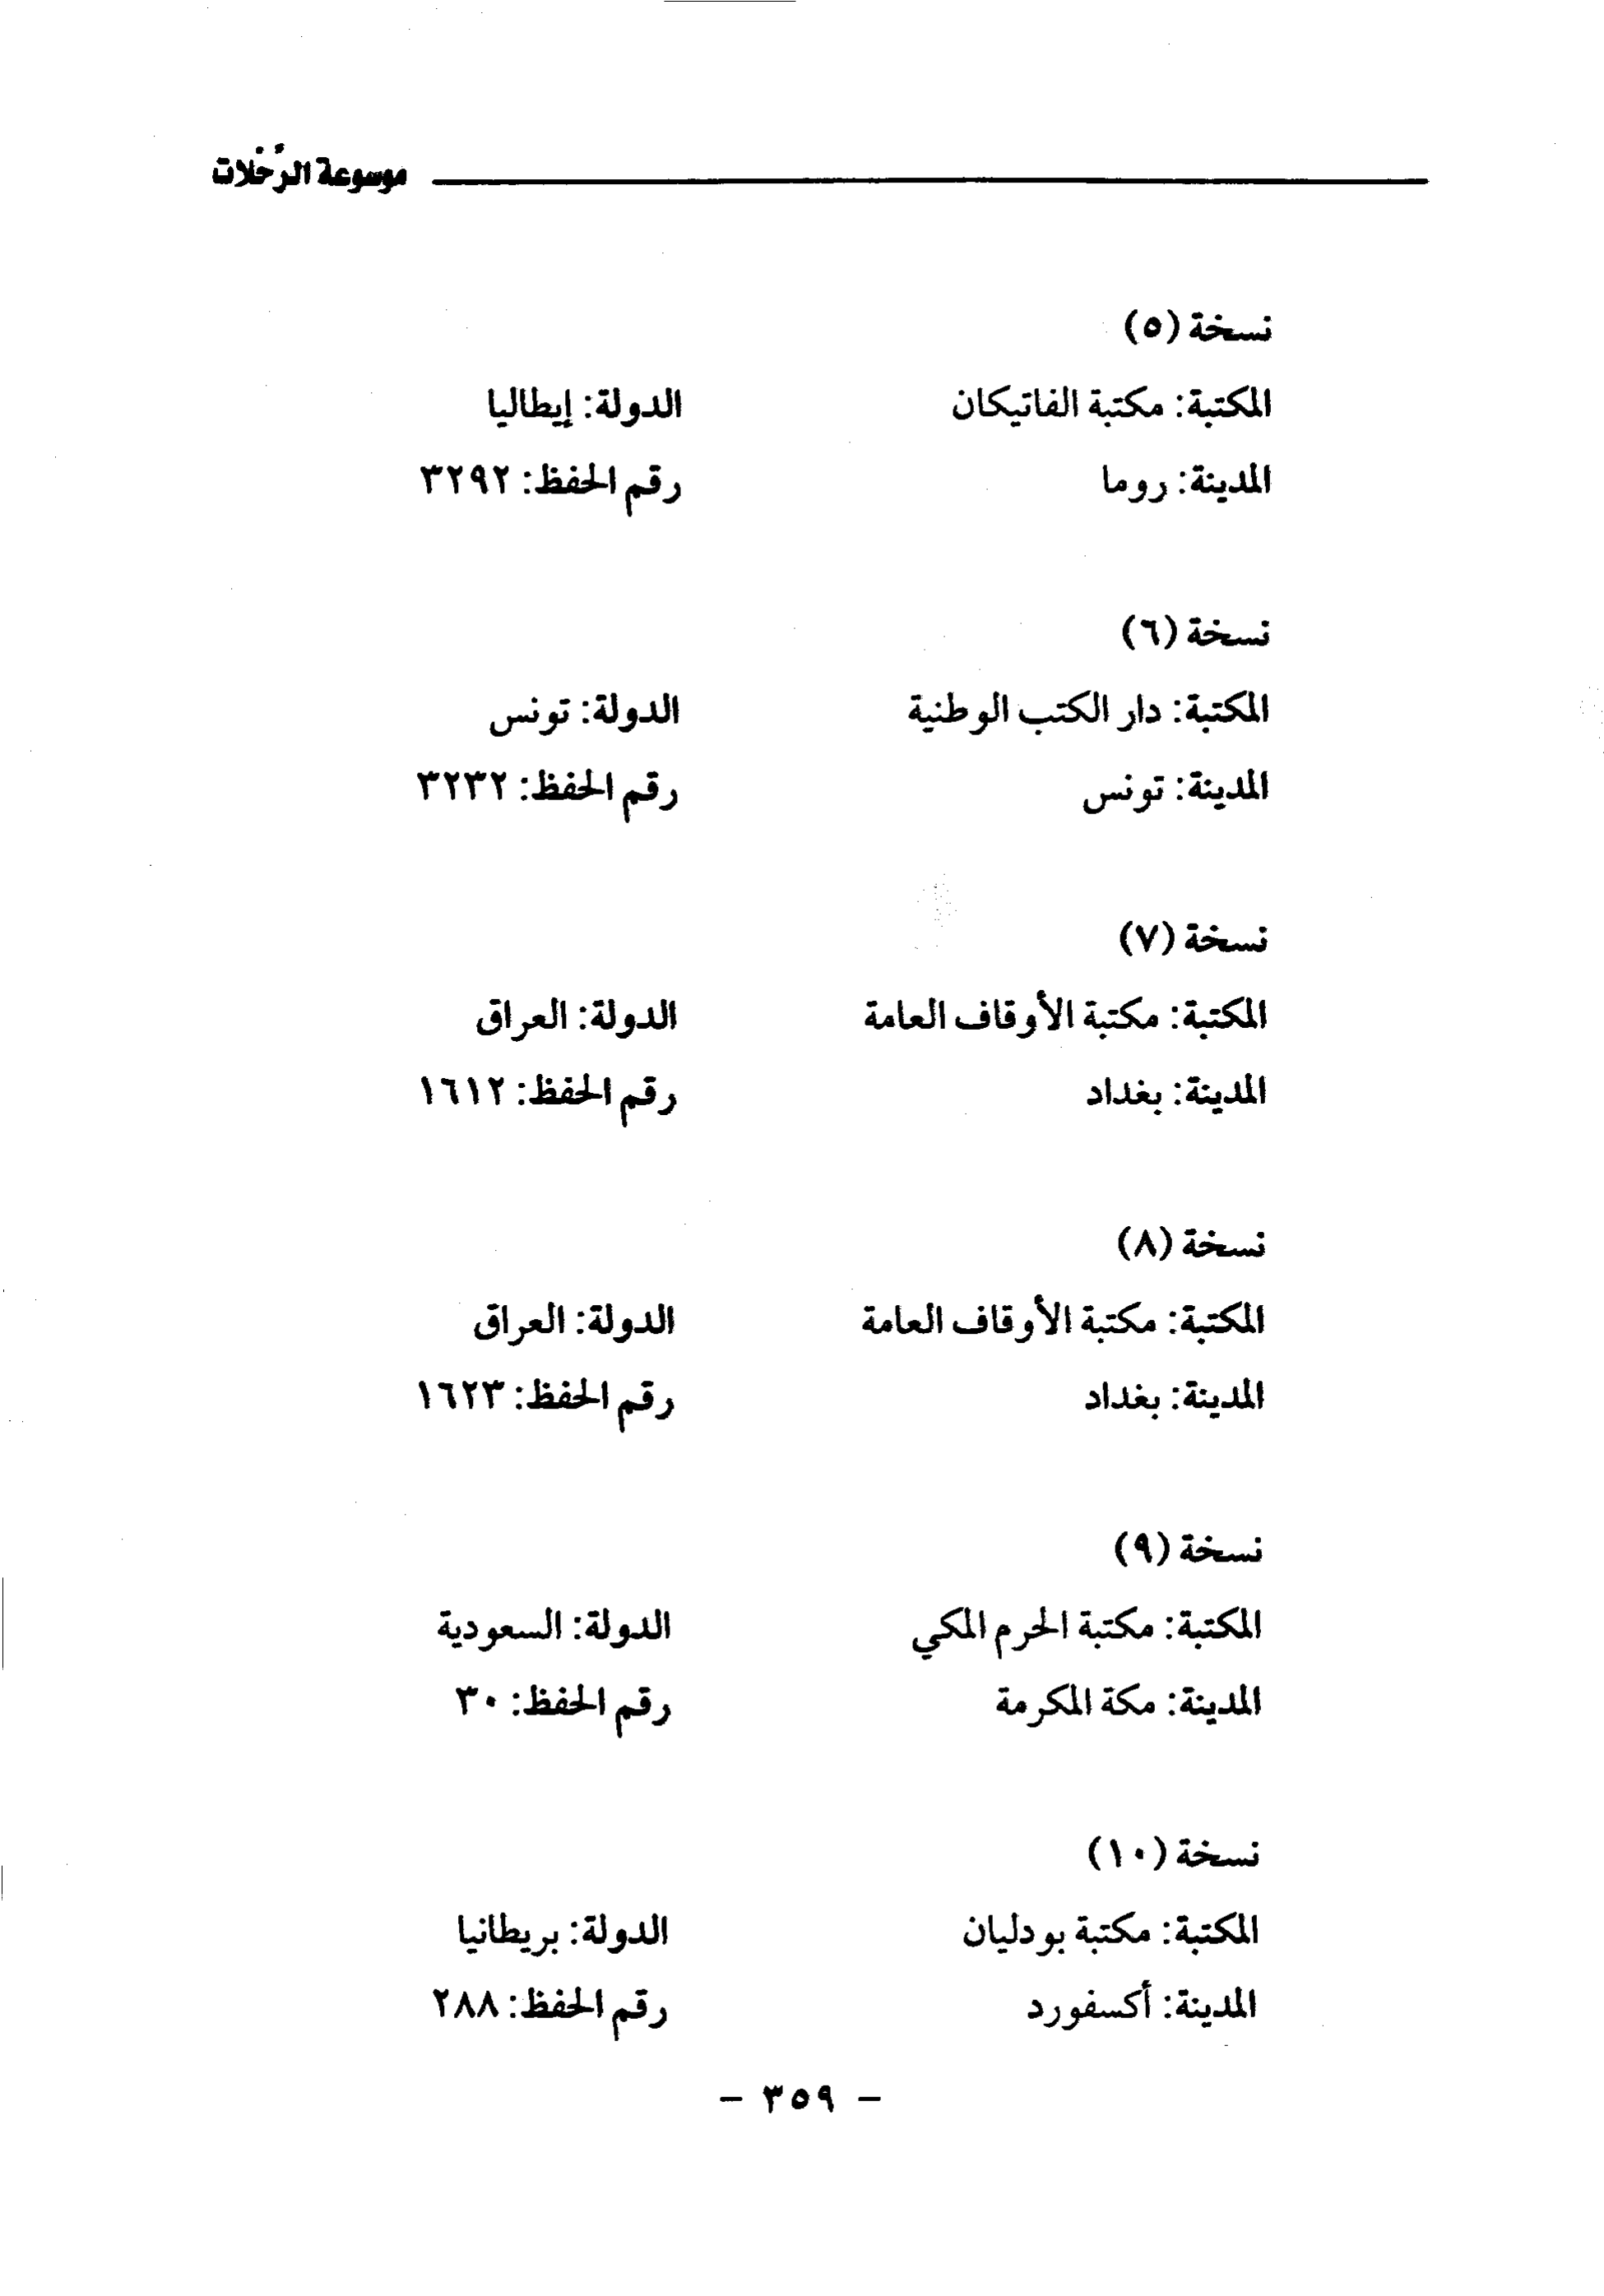 موسوعة الرّحلات
نسخة (٥)
المكتبة: مكتبة الفاتيكان الدولة: إيطاليا
المدينة: روما رقم الحفظ: ٣٢٩٢
نسخة (٦)
المكتبة: دار الكتب الوطنية الدولة: تونس
المدينة: تونس رقم الحفظ: ٣٢٣٢
نسخة (٧)
المكتبة: مكتبة الأوقاف العامة الدولة: العراق
المدينة: بغداد رقم الحفظ: ١٦١٢
نسخة (٨)
المكتبة: مكتبة الأوقاف العامة الدولة: العراق
المدينة: بغداد رقم الحفظ: ١٦٢٣
نسخة (٩)
المكتبة: مكتبة الحرم المكي الدولة: السعودية
المدينة: مكة المكرمة رقم الحفظ: ٣٠
نسخة (١٠)
المكتبة: مكتبة بودليان الدولة: بريطانيا
المدينة: أكسفورد رقم الحفظ: ٢٨٨
- ٣٥٩ -